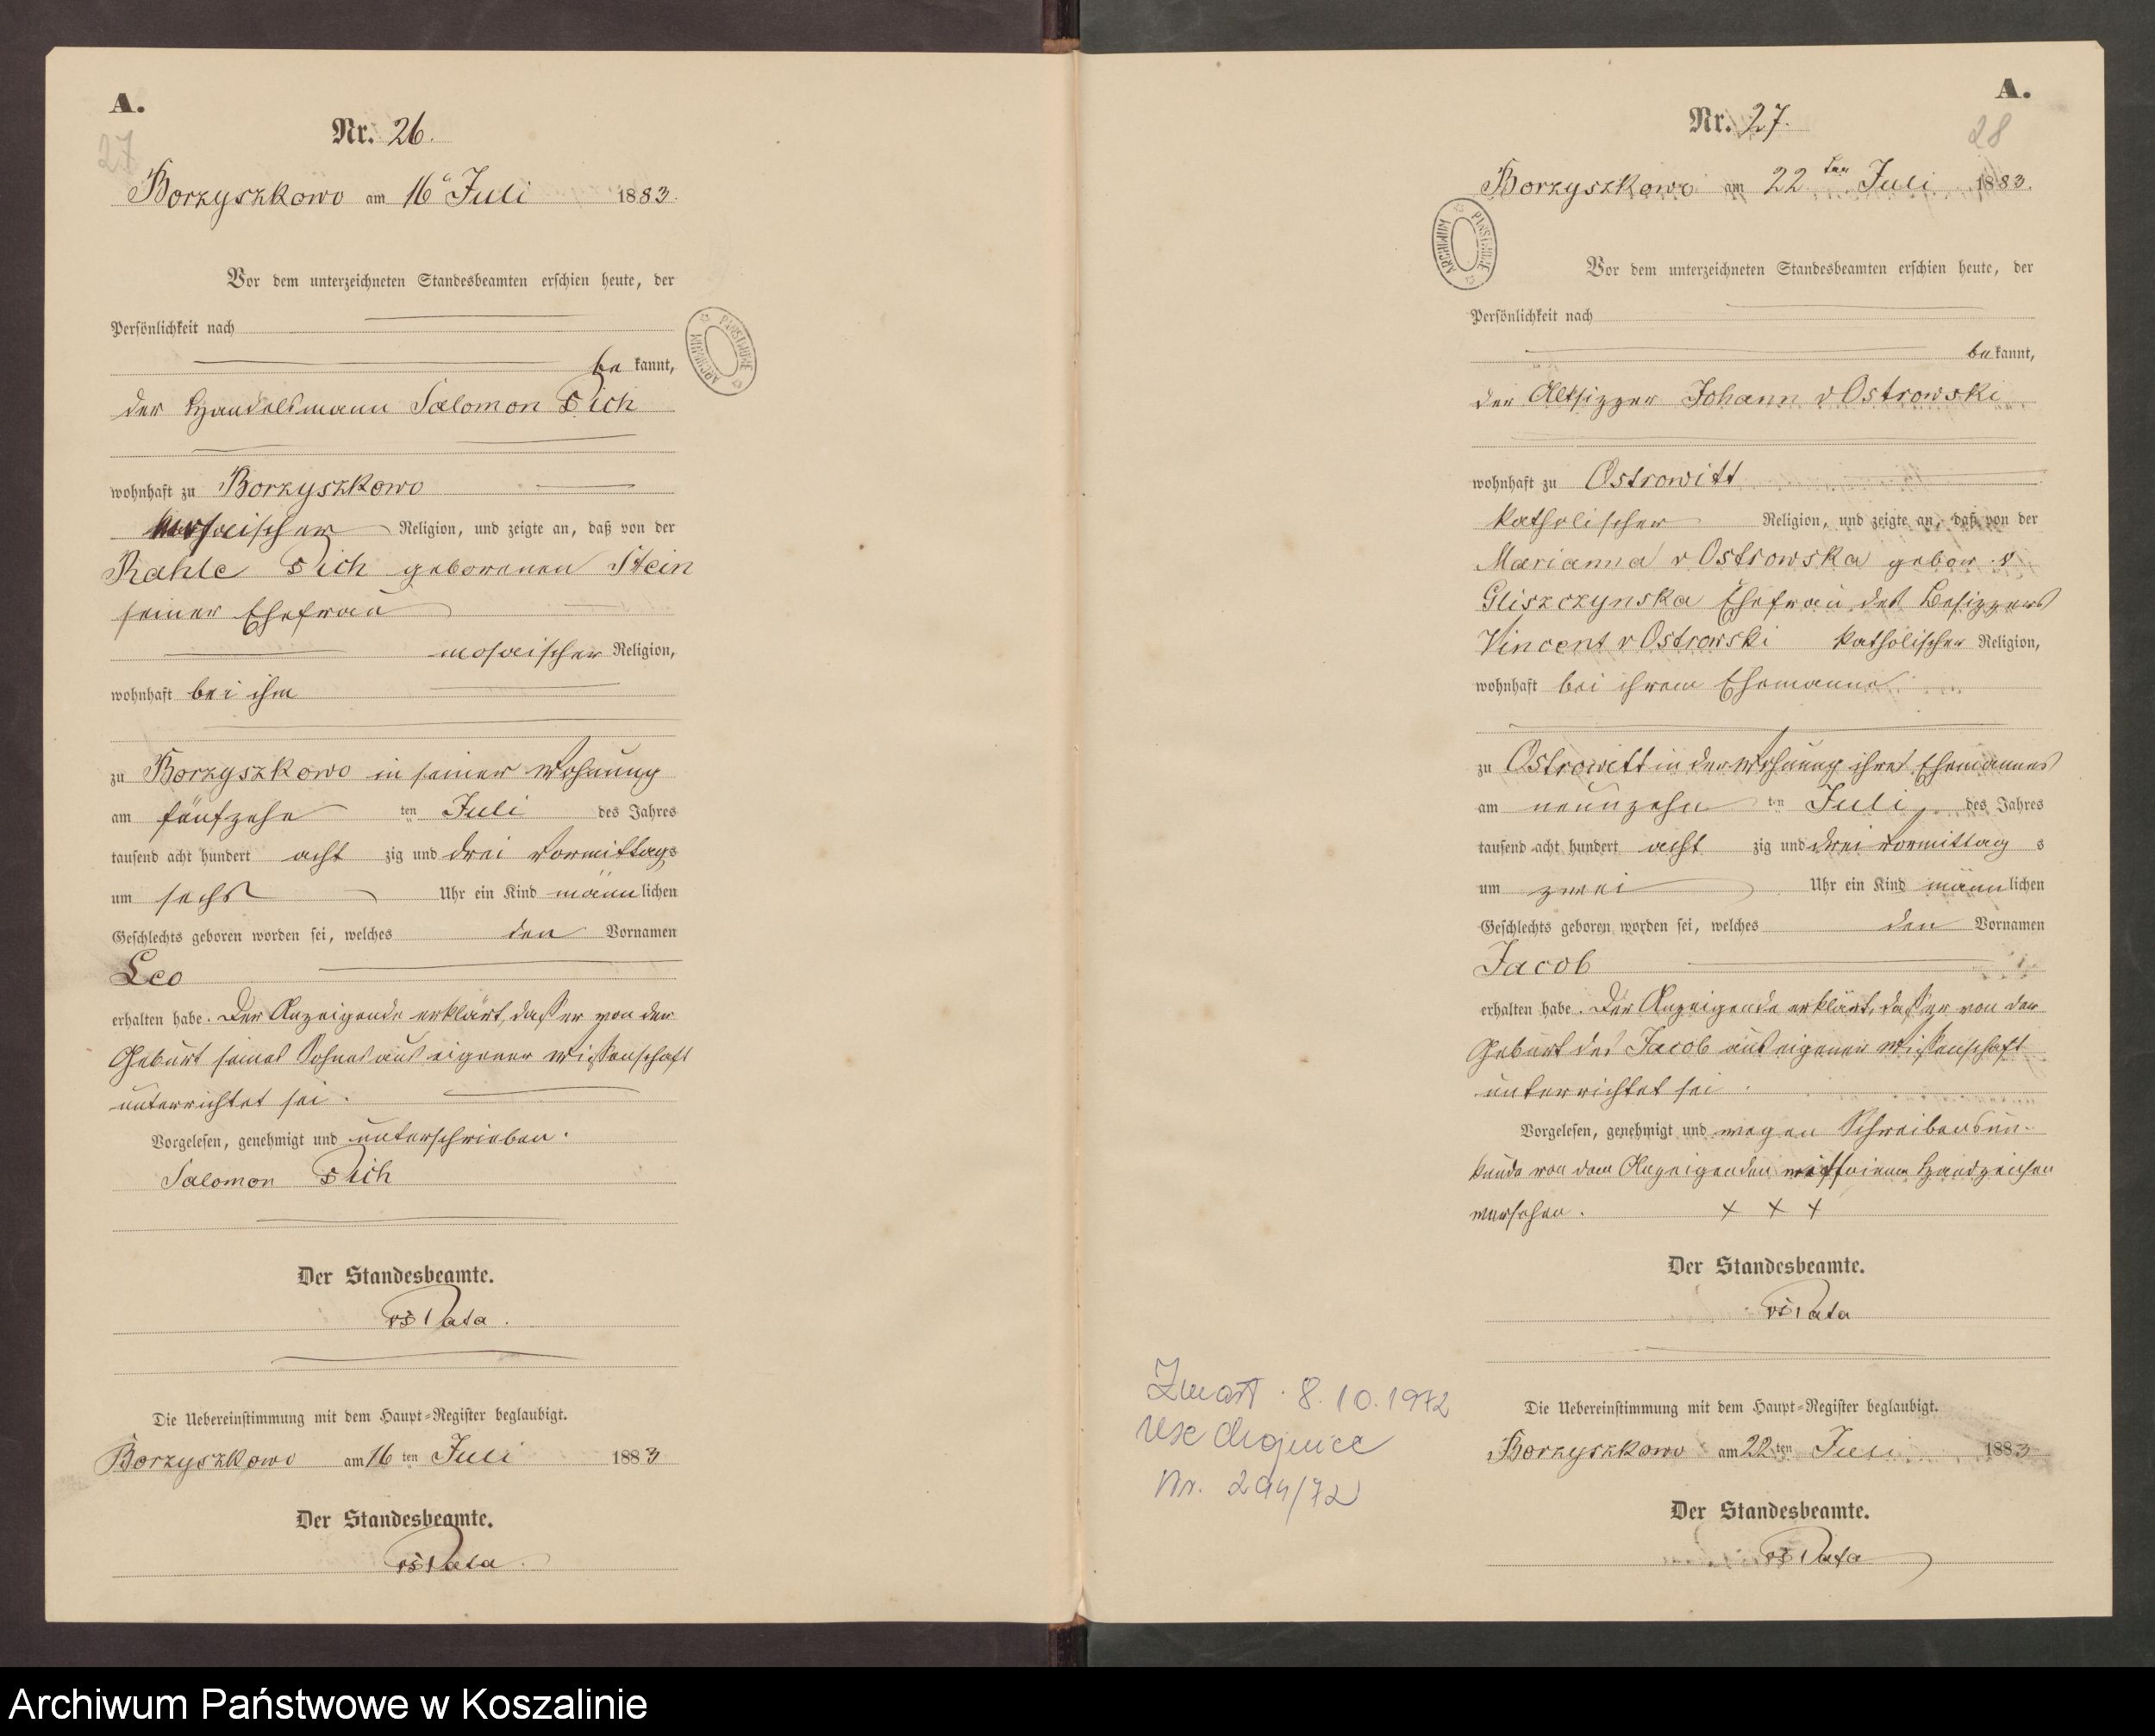 A.
27
Nr. 26.
Borzyszkowo am 16 Juli 1883.
Vor dem unterzeichneten Standesbeamten erschien heute, der
Persönlichkeit nach
be kannt,
der Handelsmann Salomon
wohnhaft zu Borzyszkowo
mosaischer Religion, und zeigte an, daß von der
Rahle geborenen Stein
seiner Ehefrau
mosaischer Religion,
wohnhaft bei ihm
zu Borzyszkowo in seiner Wohnung
am fünfzehn ten Juli des Jahres
tausend acht hundert acht zig und drei Vormittags
um sechs Uhr ein Kind männ lichen
Geschlechts geboren worden sei, welches den Vornamen
Leo
erhalten habe. Der Anzeigende erklärt, daß er von der
Geburt seines Sohnes aus eigener Wissenschaft
unterrichtet sei.
Vorgelesen, genehmigt und unterschrieben.
Salomon
Der Standesbeamte.
Die Uebereinstimmung mit dem Haupt-Register beglaubigt.
Borzyszkowo am 16 ten Juli 1883
Der Standesbeamte.
A.
28
Nr. 27.
Borzyszkowo am 22 ten Juli 1883.
ARCHIWUM PAŃSTWOWE
Vor dem unterzeichneten Standesbeamten erschien heute, der
Persönlichkeit nach
be kannt,
der Altsitzer Johann v Ostrowski
wohnhaft zu Ostrowitt
katholischer Religion, und zeigte an, daß von der
Marianna v Ostrowska gebor. v
Gliszczynska Ehefrau des Besitzers
Vincent v Ostrowski katholischer Religion,
wohnhaft bei ihrem Ehemanne
zu Ostrowitt in der Wohnung ihres Ehemannes
am neunzehn ten Juli des Jahres
tausend acht hundert acht zig und drei Vormittag s
um zwei Uhr ein Kind männ lichen
Geschlechts geboren worden sei, welches den Vornamen
Jacob
erhalten habe. Der Anzeigende erklärt, daß er von der
Geburt des Jacob aus eigener Wissenschaft
unterrichtet sei.
Vorgelesen, genehmigt und wegen Schreibensun-
kunde von dem Anzeigenden mit seinem Handzeichen
versehen. + + +
Der Standesbeamte.
Die Uebereinstimmung mit dem Haupt-Register beglaubigt.
Borzyszkowo am 22 ten Juli 1883
Der Standesbeamte.
Zmarł 8.10.1972
USC Chojnice
Nr. 294/72
Archiwum Państwowe w Koszalinie